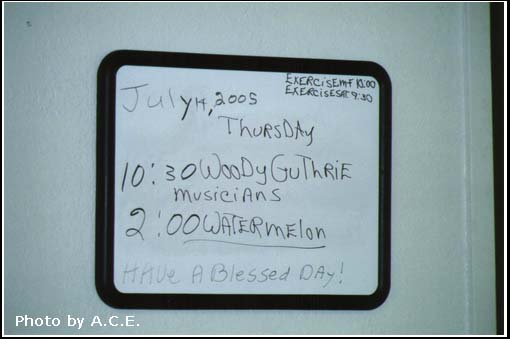 EXERCISE M-F 10:00
EXERCISE SAT 9:30
July 14, 2005
THURSDAy
10:30 WOODy GuTHRIE
musiciANS
2:00 WATERmelon
HAVE A Blessed DAy!
Photo by A.C.E.